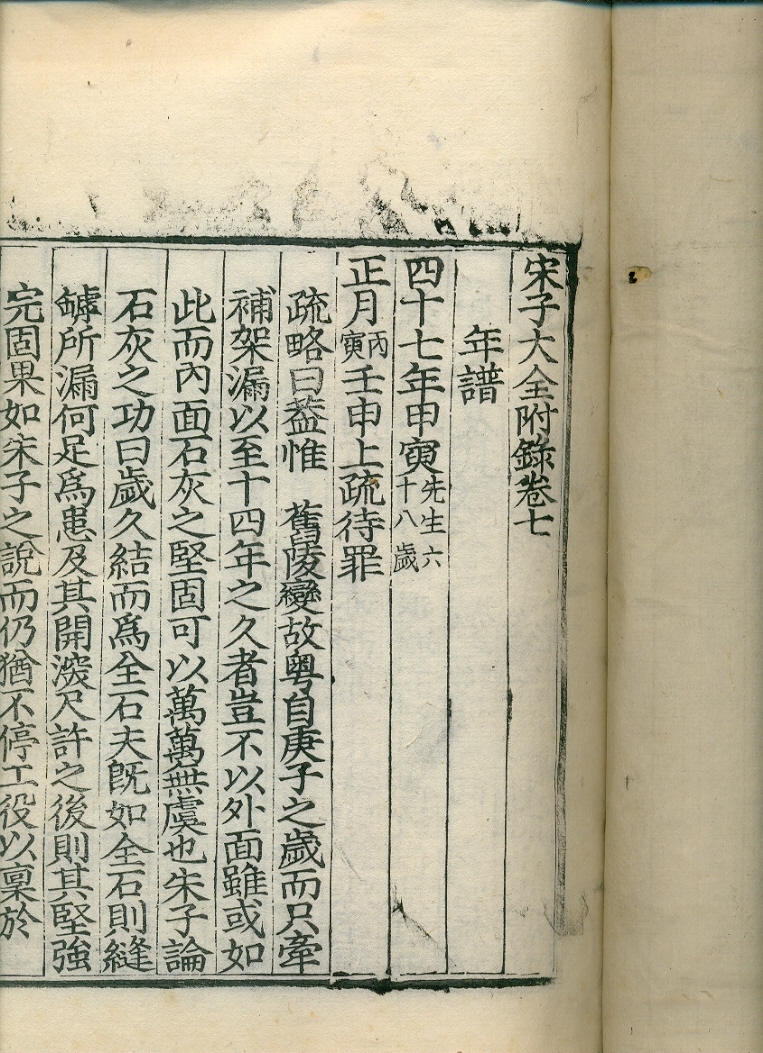 宋子大全附錄卷七
年譜
四十七年甲寅先生六十八歲
正月丙寅壬申上疏待罪
疏略曰蓋惟 舊陵變故粤自庚子之歲而只牽
補架漏以至十四年之久者豈不以外面雖或如
此而內面石灰之堅固可以萬萬無虞也朱子論
石灰之功曰歲久結而爲全石夫旣如全石則縫
罅所漏何足爲患及其開深尺許之後則其堅強
完固果如朱子之說而仍猶不停工役以稟於